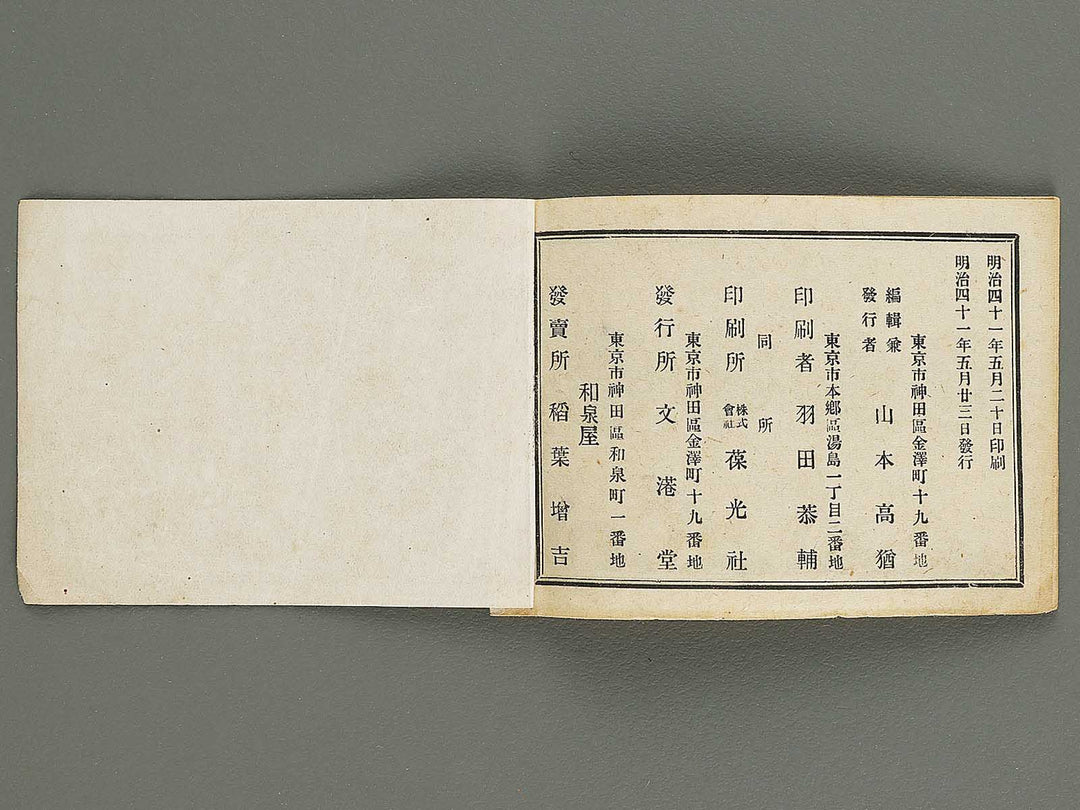 明治四十一年五月二十日印刷
明治四十一年五月廿三日發行
東京市神田區金澤町十九番地
編輯兼
發行者
山本高猶
東京市本鄕區湯島一丁目二番地
印刷者 羽田恭輔
同所
印刷所 株式會社 葆光社
東京市神田區金澤町十九番地
發行所 文港堂
東京市神田區和泉町一番地
和泉屋
發賣所 稻葉增吉